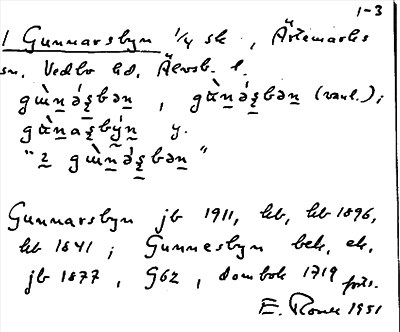 1-3
1 Gunnarsbyn 1/4 sk, Ärtemarks
sn, Vedbo hd, Älvsb. l.
gɯ̀n̲ə́s̲bən, gɯ̀n̲ə́s̲bən (vanl.);
gɯ̀n̲as̲býn̲ y.
"2 gɯ̀n̲ə́s̲bən"
Gunnarsbyn jb 1911, kb, hb 1896,
kb 1841; Gunnesbyn bek, ek,
jb 1877, GÖz, dombok 1719 förs.
E. Rome 1951